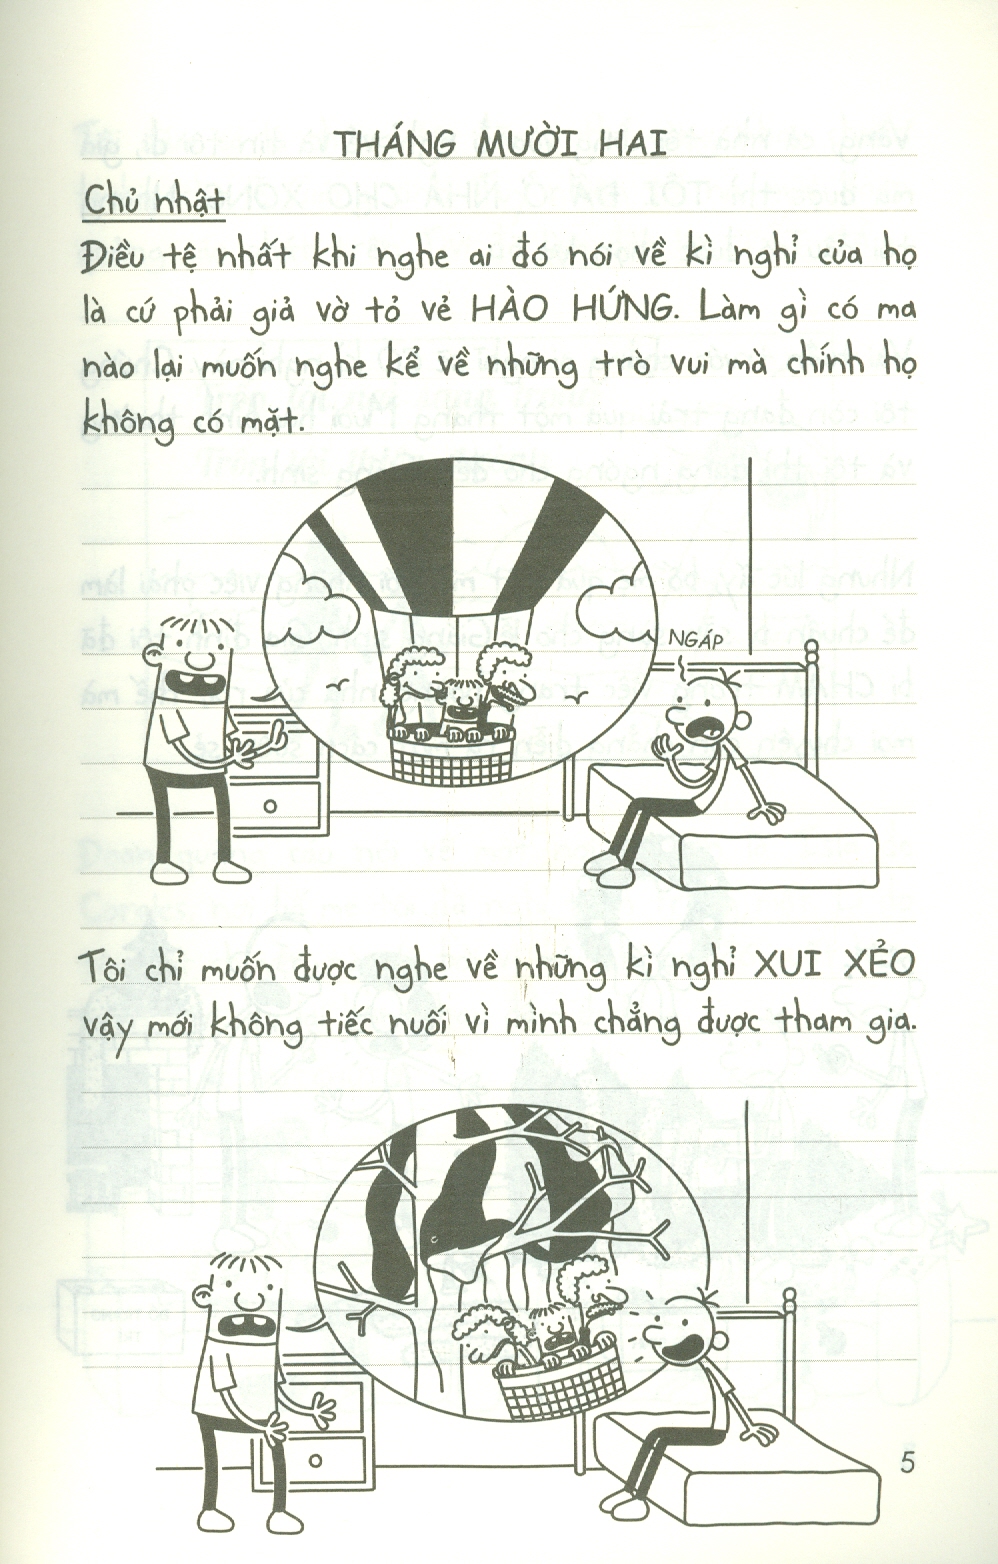 THÁNG MƯỜI HAI
Chủ nhật
Điều tệ nhất khi nghe ai đó nói về kì nghỉ của họ
là cứ phải giả vờ tỏ vẻ HÀO HỨNG. Làm gì có ma
nào lại muốn nghe kể về những trò vui mà chính họ
không có mặt.
NGÁP
Tôi chỉ muốn được nghe về những kì nghỉ XUI XẺO
vậy mới không tiếc nuối vì mình chẳng được tham gia.
5